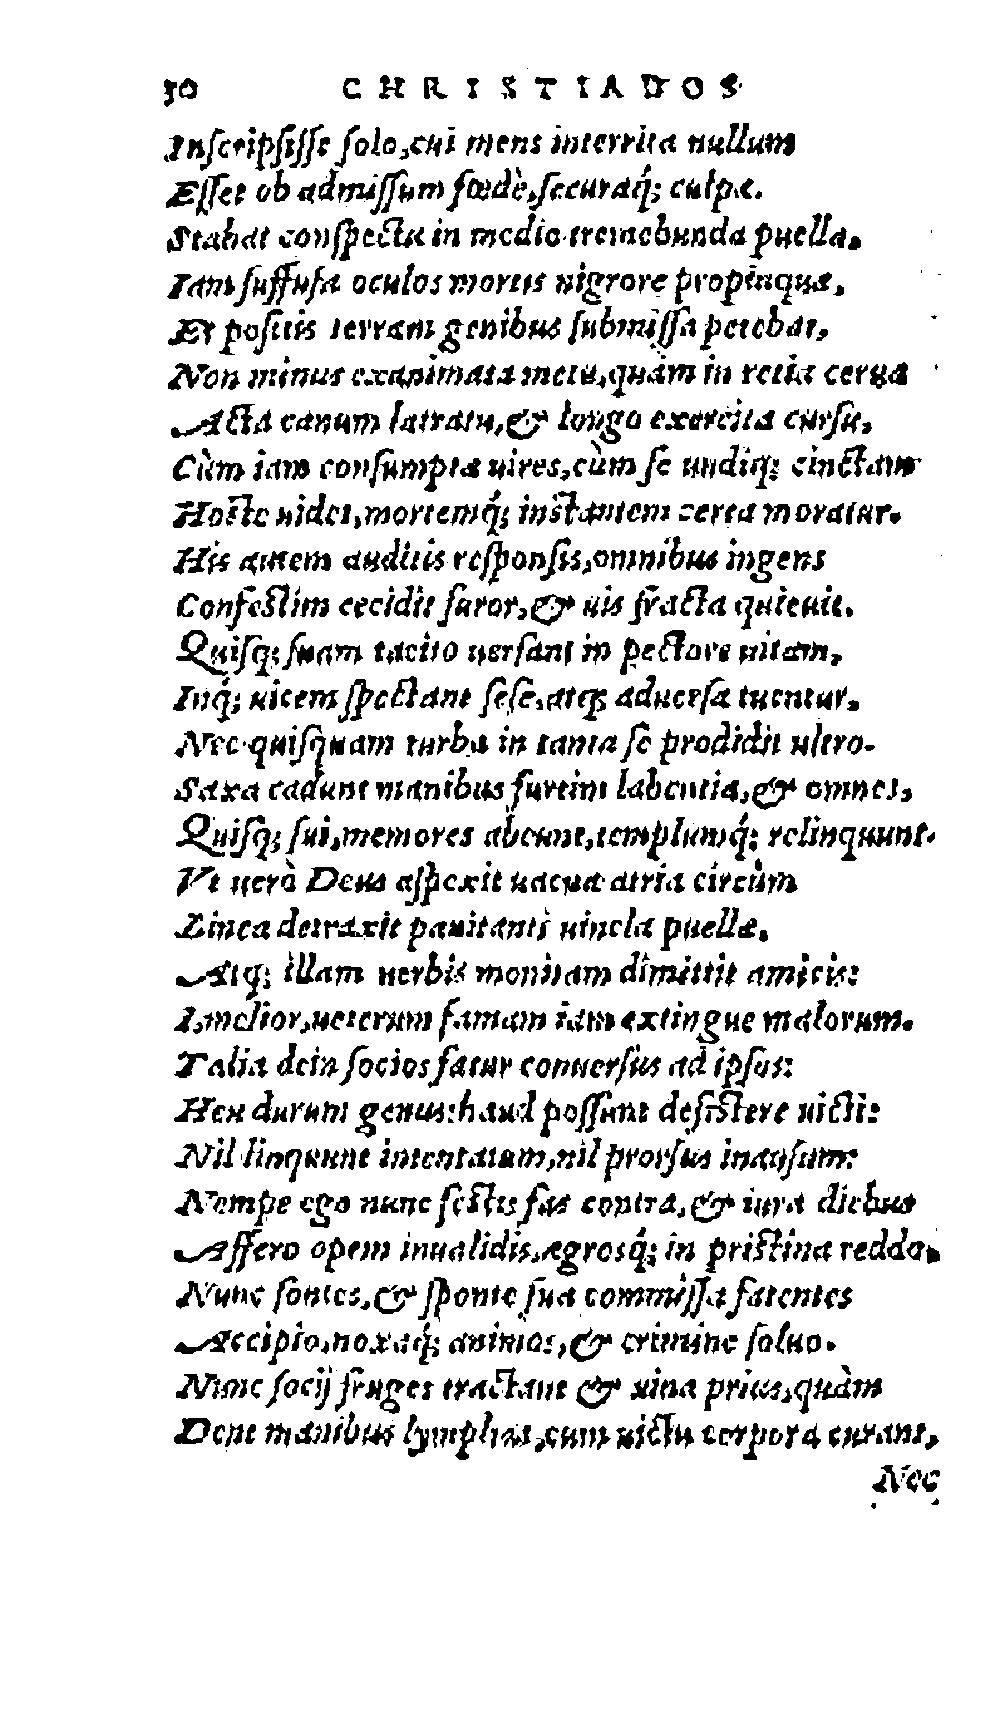 30 CHRISTIADOS
Inſcripſiſſe ſolo, cui mens interrita nullum
Eſſet ob admiſſum fœdè, ſecuraq́; culpæ.
Stabat conſpectu in medio tremebunda puella.
Iam ſuffuſa oculos mortis nigrore propinquæ,
Et poſitis terram genibus ſubmiſſa petebat,
Non minus exanimata metu, quàm in retia cerua
Acta canum latratu, & longo exercita curſu,
Cùm iam conſumpta uires, cùm ſe undiq; cinctam
Hoſte uidet, mortemq́; inſtantem certa moratur.
His autem auditis reſponſis, omnibus ingens
Confeſtim cecidit furor, & uis fracta quieuit.
Quiſq; ſuam tacito uerſant in pectore uitam,
Inq́; uicem ſpectant ſeſe, atq; aduerſa tuentur.
Nec quiſquam turba in tanta ſe prodidit ultro.
Saxa cadunt manibus furtim labentia, & omnes,
Quiſq; ſui, memores abeunt, templumq́; relinquunt.
Vt uerò Deus aſpexit uacua atria circùm
Linea detraxit pauitanti uincla puellæ.
Atq; illam uerbis monitam dimittit amicis:
I, melior, ueterum famam iam extingue malorum.
Talia dein ſocios fatur conuerſus ad ipſos:
Heu durum genus: haud poſſunt deſiſtere uicti:
Nil linquunt intentatum, nil prorſus inauſum:
Nempe ego nunc feſtis fas contra, & iura diebus
Affero opem inualidis, ægrosq́; in priſtina reddo.
Nunc ſontes, & ſponte ſua commiſſa fatentes
Accipio, noxaq́; animos, & crimine ſoluo.
Nunc ſocij fruges tractant & uina prius, quàm
Dent manibus lymphas, cum uictu corpora curant,
Nec